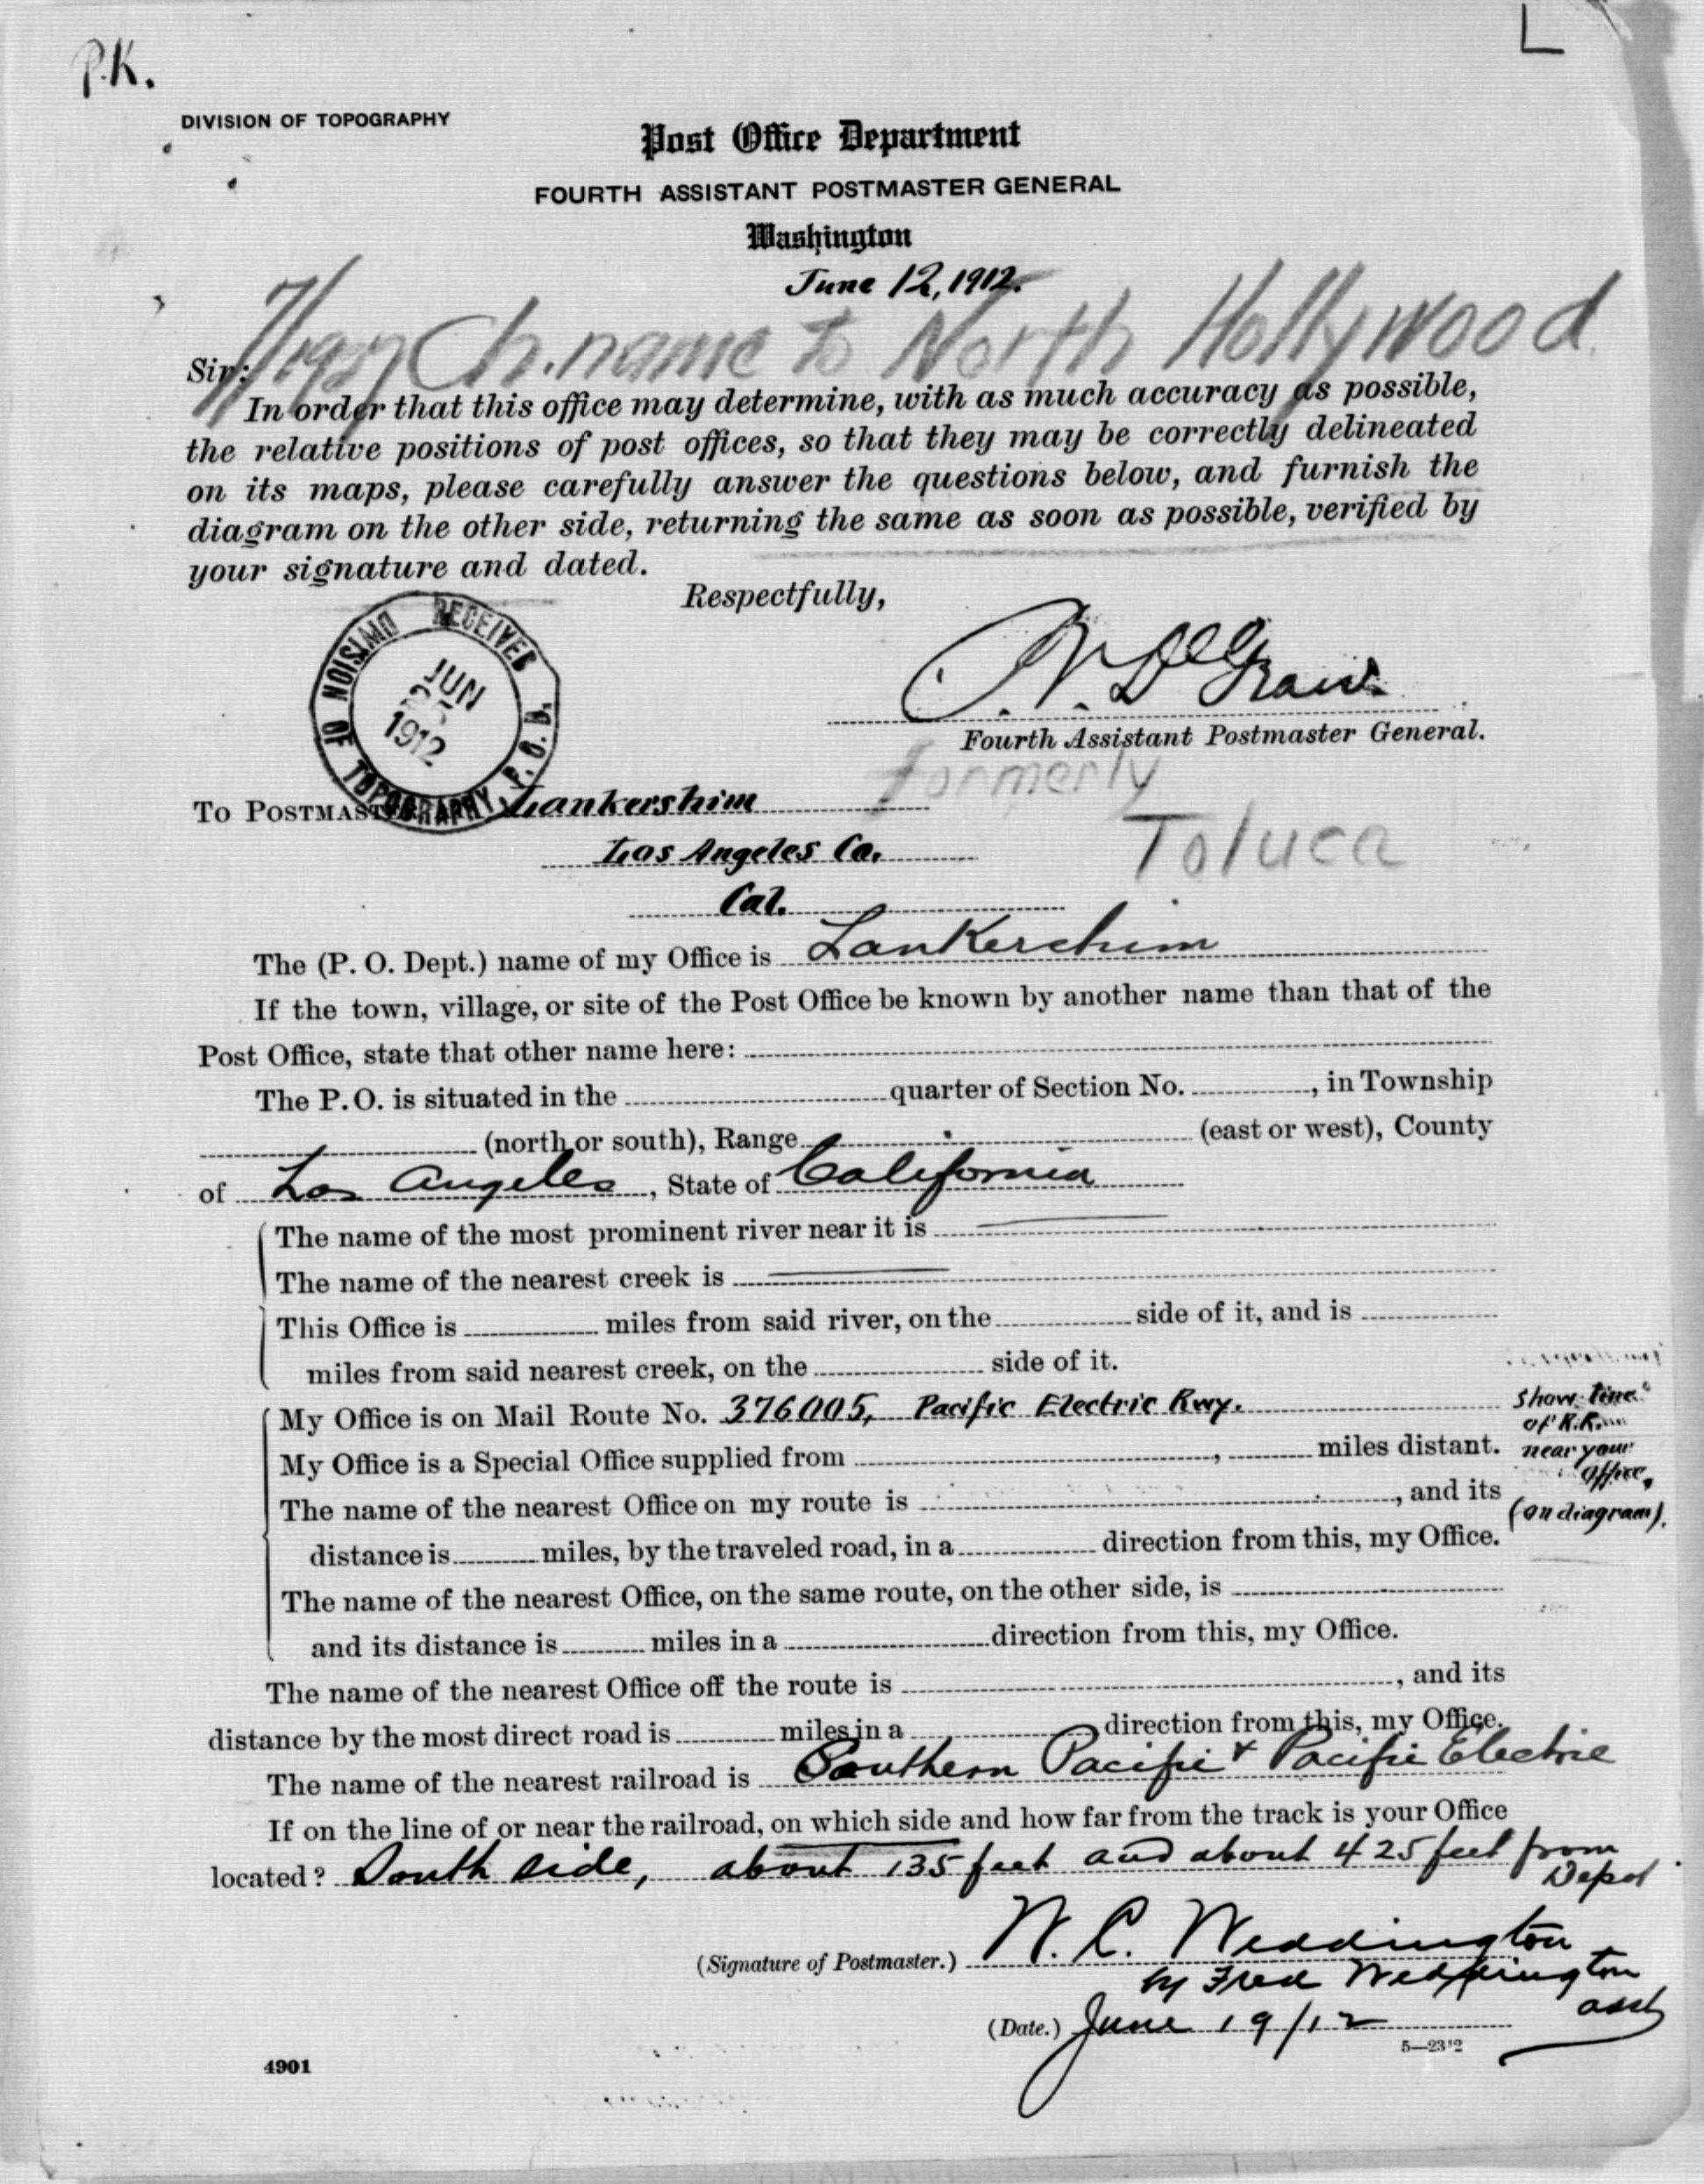 P.K.
L
DIVISION OF TOPOGRAPHY
Post Office Department
FOURTH ASSISTANT POSTMASTER GENERAL
Washington
June 12, 1912.
Ch. name to North Hollywood
Sir:
In order that this office may determine, with as much accuracy as possible,
the relative positions of post offices, so that they may be correctly delineated
on its maps, please carefully answer the questions below, and furnish the
diagram on the other side, returning the same as soon as possible, verified by
your signature and dated.
Respectfully,
RECEIVED P.O.D. DIVISION OF TOPOGRAPHY
JUN
1912
Fourth Assistant Postmaster General.
formerly
Toluca
To POSTMASTER Lankershim
Los Angeles Co.
Cal.
The (P. O. Dept.) name of my Office is Lankershim
If the town, village, or site of the Post Office be known by another name than that of the
Post Office, state that other name here:
The P.O. is situated in the quarter of Section No. , in Township
(north or south), Range (east or west), County
of Los Angeles, State of California
The name of the most prominent river near it is
The name of the nearest creek is
This Office is miles from said river, on the side of it, and is
miles from said nearest creek, on the side of it.
My Office is on Mail Route No. 376005, Pacific Electric Rwy.
My Office is a Special Office supplied from , miles distant.
The name of the nearest Office on my route is , and its
distance is miles, by the traveled road, in a direction from this, my Office.
The name of the nearest Office, on the same route, on the other side, is
and its distance is miles in a direction from this, my Office.
show line
of R.R.
near your
office,
(on diagram).
The name of the nearest Office off the route is , and its
distance by the most direct road is miles in a direction from this, my Office.
The name of the nearest railroad is Southern Pacific & Pacific Electric
If on the line of or near the railroad, on which side and how far from the track is your Office
located? South side, about 135 feet and about 425 feet from
Depot
(Signature of Postmaster.) W. C. Weddington
by Fred Weddington
asst
(Date.) June 19/12
5—2312
4901